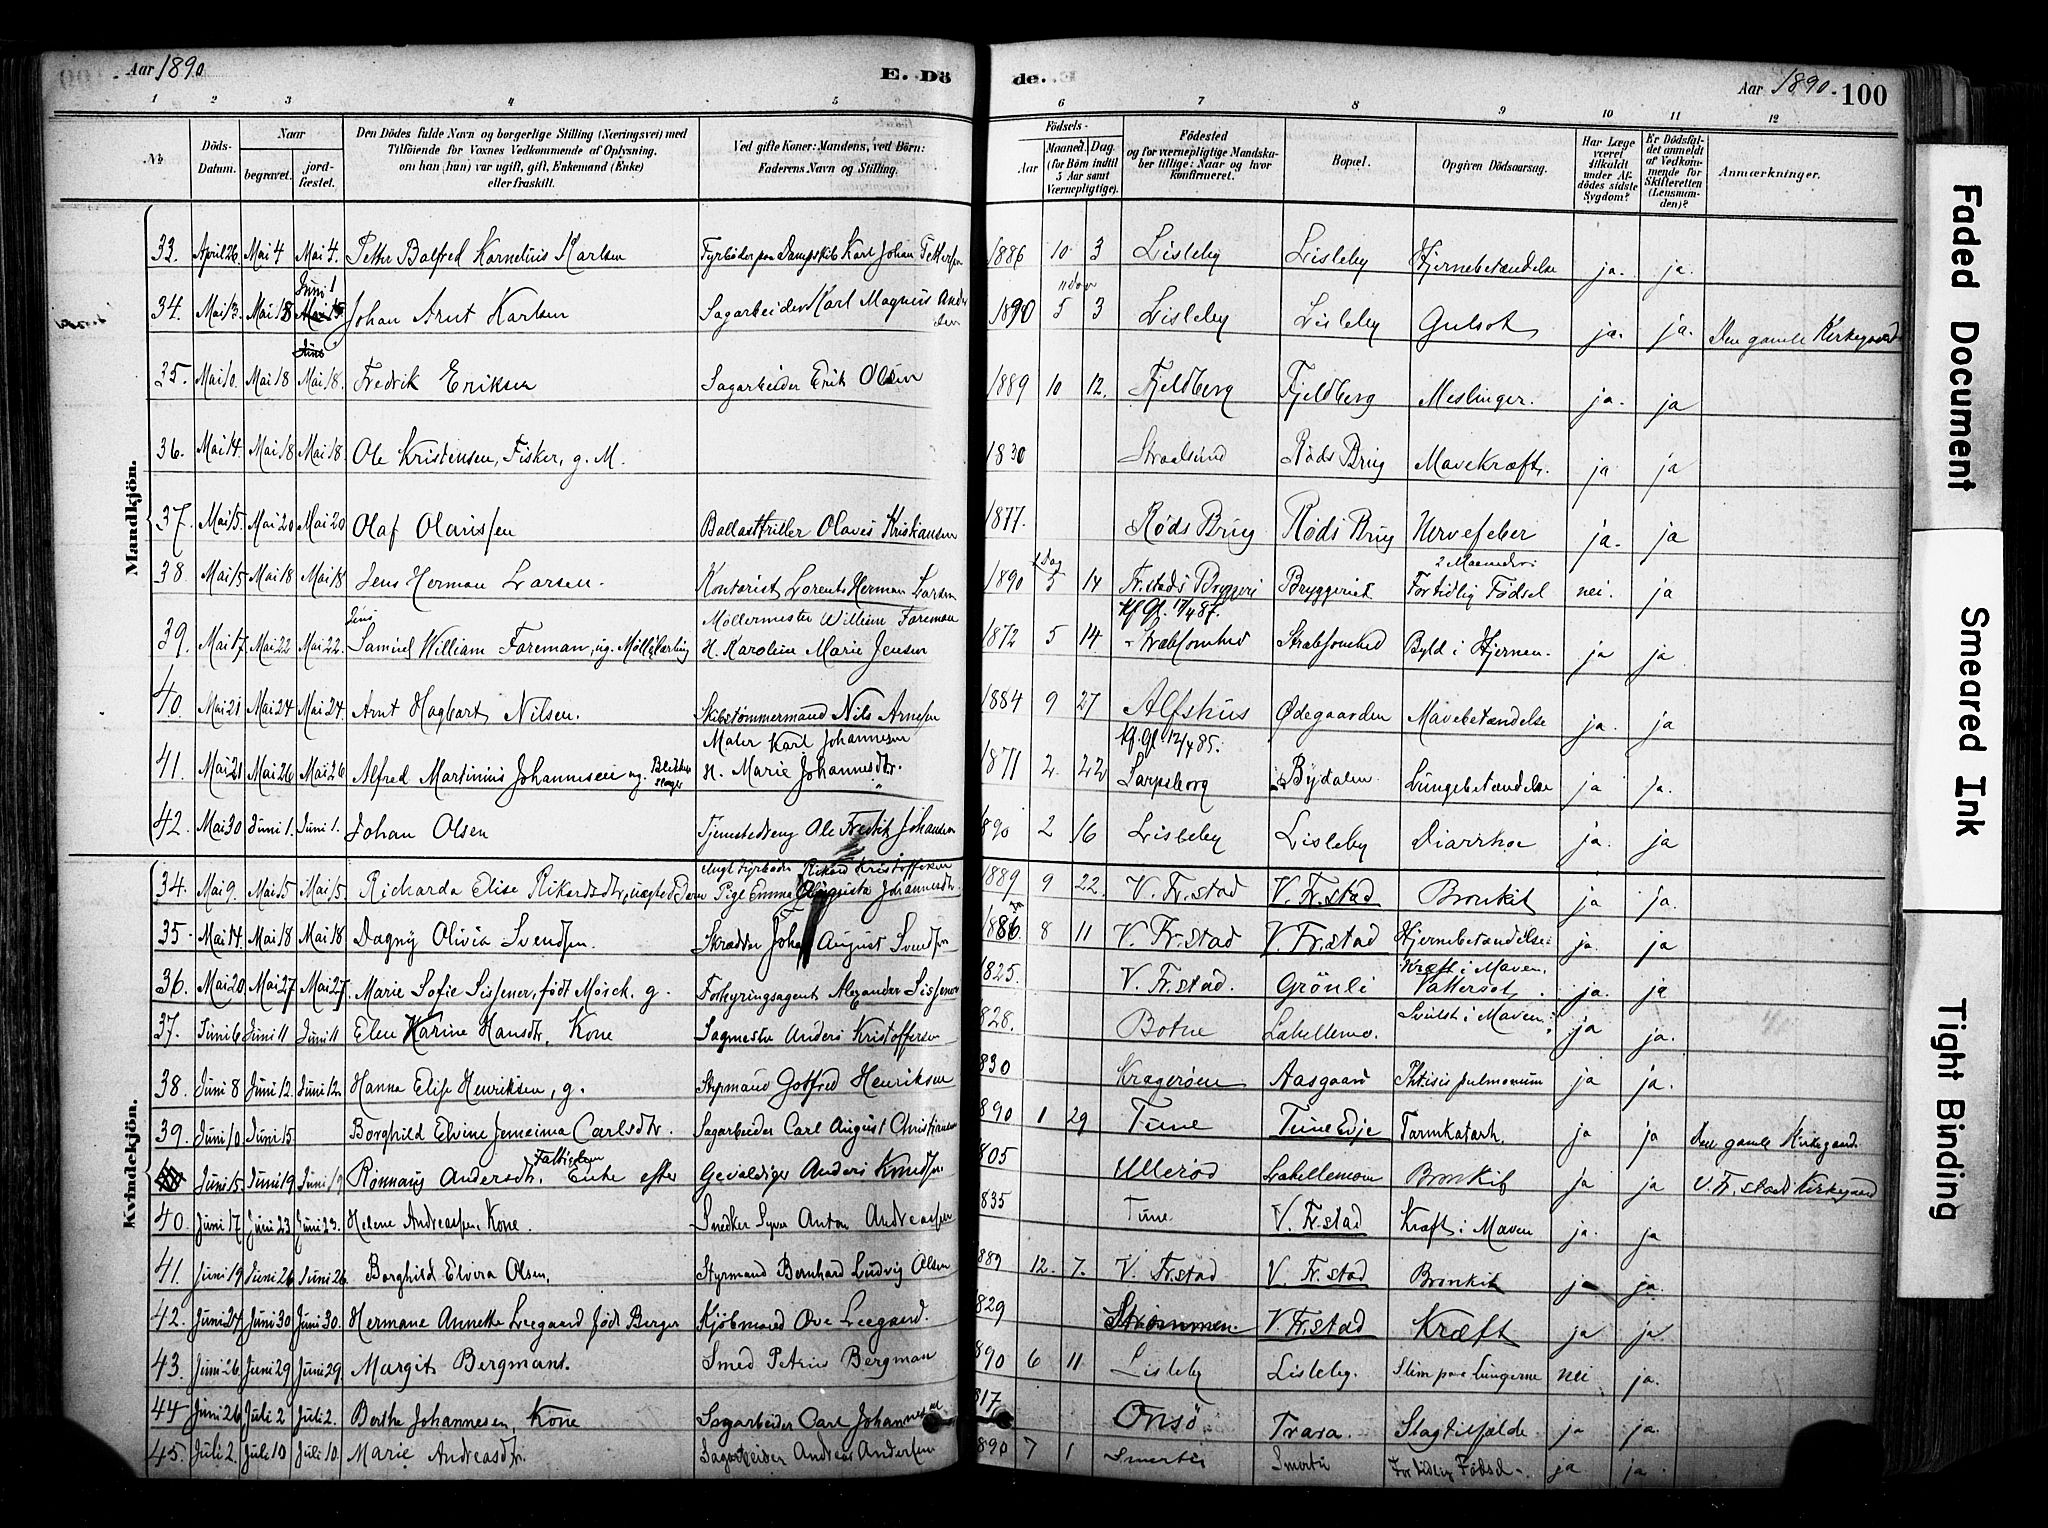 Aar 1890 E. Dö de. Aar 1890. 100
1 2 3 4 5 6 7 8 9 10 11 12
№ Döds-Datum. Naar begravet. jordfæstet. Den Dödes fulde Navn og borgerlige Stilling (Næringsvei) med Tilföiende for Voxnes Vedkommende af Oplysning, om han (hun) var ugift, gift, Enkemand (Enke) eller fraskilt. Ved gifte Koner: Mandens, ved Börn: Faderens Navn og Stilling. Födsels- Aar Maaned. Dag (for Börn indtil 5 Aar samt Værnepligtige). Födested og for værnepligtige Mandskaber tillige: Naar og hvor Konfirmeret. Bopæl. Opgiven Dödsaarsag. Har Læge været tilkaldt under Afdödes sidste Sygdom? Er Dödsfaldet anmeldt af Vedkommende for Skifteretten (Lensmanden)? Anmærkninger.
Mandkjön.
33. April 26. Mai 4 Mai 4. Petter Balfred Kornelius Karlsen Fyrböder paa Dampskib Karl Johan Pettersen 1886 10 3 Lisleby Lisleby Hjernebetændelse ja. ja.
34. Mai 13. Mai 18 Juni 1 Johan Arnt Karlsen Sagarbeider Karl Magnus Andersen 1890 5 3 Lisleby Lisleby Gulsot ja. ja. Den gamle Kirkegaard
35. Mai 10. Mai 18 Mai 18. Fredrik Eriksen Sagarbeider Erik Olsen 1889 10 12. Fjeldberg Fjeldberg Meslinger. ja. ja
36. Mai 14. Mai 18 Mai 18. Ole Kristensen, Fisker, g. M. 1830 Straalsund Röds Brug Mavekræft. ja ja
37. Mai 15. Mai 20 Mai 20 Olaf Olavissen Ballasttriller Olaves Kristiansen 1877. Röds Brug Röds Brug Nervefeber ja. ja
38. Mai 15 Mai 18 Mai 18 Jens Herman Larsen. Kontorist Lorents Herman Larsen 1890 5 14 Fr.stads Bryggeri Bryggeriet For tidlig Födsel nei. ja
39. Mai 17. Mai 22 Mai 22. Samuel William Foreman, ug. Möllelærling Möllermester William Foreman H. Karoline Marie Jensen 1872 5 14 Kf. Gl. 17/4 87. Stræbsomhed Stræbsomhed Byld i Hjernen. ja ja.
40. Mai 21 Mai 24 Mai 24. Arnt Hagbart Nilsen. Skibstömmermand Nils Arnesen 1884 9 27 Alfshus Ödegaarden Mavebetændelse ja. ja
41. Mai 21 Mai 26 Mai 26 Alfred Martinius Johannesen ug. Blikkenslager Maler Karl Johannesen H. Marie Johannesdtr. 1871 2. 22 Kf. Gl 12/4 85. Sarpsborg Bydalen Lungebetændelse ja ja.
42. Mai 30 Juni 1. Juni 1. Johan Olsen Tjenestedreng Ole Fredrik Johansen 890 2 16 Lisleby Lisleby Diarrhoe ja. ja
Kvindekjön.
34. Mai 9. Mai 15 Mai 15. Rickarda Elise Rikardsdtr, uægte Barn Ungk Fyrböder Rikard Kristoffersen Pige Emma Augusta Johannesdtr 1889 9 22. V. Fr.stad V. Fr.stad Bronkit ja ja.
35. Mai 14. Mai 18 Mai 18 Dagny Olivia Svendsen. Skrædder Johan August Svendsen 1886. 8 11 V. Fr.stad V. Fr.stad Hjernebetændelse. ja. ja
36. Mai 20 Mai 27 Mai 27. Marie Sofie Sissener, født Mørch. g. Forhyringsagent Alexander Sissener 1825. V. Fr.stad. Grönli Kræft i Maven. Vattersot. ja. ja
37. Juni 6 Juni 11 Juni 11 Elen Karine Hansdtr. Kone Sagmester Anders Kristoffersen 828. Botne Labellemo. Svulst i Maven ja ja.
38. Juni 8 Juni 12. Juni 12. Hanna Elise Henriksen, g. Styrmand Gotfred Henriksen 830 Kragerøen Aasgaard Phtisis pulmonum ja ja.
39. Juni 10. Juni 15 Borghild Elvine Jemeima Carlsdtr. Sagarbeider Carl August Christiansen 890 1 29 Tune Tune Edje Tarmkatarh. ja ja Den gamle Kirkegaard.
Juni 15. Juni 19 Juni 19 Rönnaug Andersdtr. Fattiglem Enke efter Gevaldiger Anders Knudsen 805 Ullerød Labellemoen Bronkit ja ja V. Fr.stads Kirkegaard
40. Juni 17 Juni 23 Juni 23. Helene Andreassen Kone. Snedker Syver Anton Andreassen 835 Tune V. Fr.stad Kræft i Maven ja. ja
41. Juni 19 Juni 26 Juni 26. Borghild Elvira Olsen. Styrmand Bernhard Ludvig Olsen 889 12. 7. V. Fr.stad V. Fr.stad Bronkit ja ja.
42. Juni 24 Juni 30 Juni 30. Hermane Annette Leegaard født Berger Kjöbmand Ove Leegaard. 829 Strömmen. V. Fr.stad Kræft ja ja
43. Juni 26. Juni 29 Juni 29. Margit Bergmans. Smed Petrus Bergman 890 6 11 Lisleby Lisleby. Slim paa Lungerne nei ja.
44 Juni 26 Juli 2 Juli 2. Berthe Johannesen, Kone Sagarbeider Carl Johannesen 817 Onsö Trara. Slagtilfælde ja ja.
45. Juli 2. Juli 10 Juli 10. Marie Andreasdtr. Sagarbeider Andreas Andersen 890 7 1 Smertu Smertu For tidlig Födsel. ja ja.
Faded Document
Smeared Ink
Tight Binding